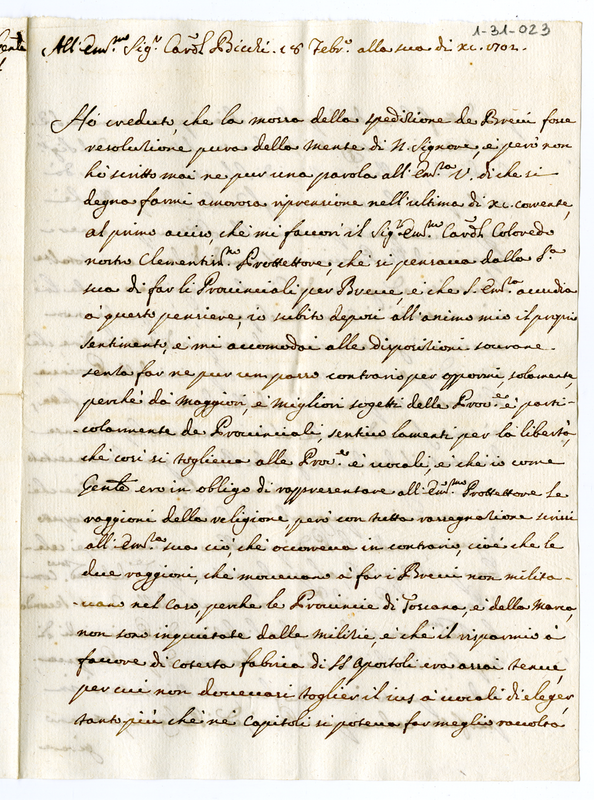 1-31-023
All'Em.mo Sig.r Card.l Bicchi. 18 Febr.o alla sua di xi. 1702.
Hó creduto, che la mossa della speditione de Brevi fosse
resolutione pura della mente di N. Signore, e però non
hò scritto mai ne pur una parola all'Em.za V. di che si
degna farmi amorosa riprensione nell'ultima di xi. corrente,
al primo aviso, che mi favorì il Sig.r Em.mo Card.l Coloredo
nostro Clementiss.mo Prottettore, che si pensava dalla S.tà
sua di far li Provinciali per Breve, e che S. Em.za accudia
à questo pensiere, io subito deposi all'animo mio il proprio
sentimento, e mi accomodai alle dispositioni sovrane
senza far ne pur un passo contrario per oppormi, solamente,
perche dà Maggiori, e Migliori sogetti delle Prov.e e parti-
colarmente de Provinciali, sentivo lamenti per la libertà,
che così si toglieva alle Prov.e e vocali, e che io come
Gen.le ero in obligo di rappresentare all'Em.mo Prottettore le
raggioni della religione, però con tutta rassegnatione scrissi
all'Em.za sua ciò, che occorreva in contrario, cioé che le
due raggioni, che movevano à far i Brevi non milita-
vano nel caso, perche le Provincie di Toscana, e della Marca,
non sono inquietate dalle militie, e che il risparmio à
favore di cotesta fabrica di SS. Apostoli era assai tenue,
per cui non dovevasi toglier il ius à vocali di eleger,
tanto più che né Capitoli si poteva far meglio raccolta